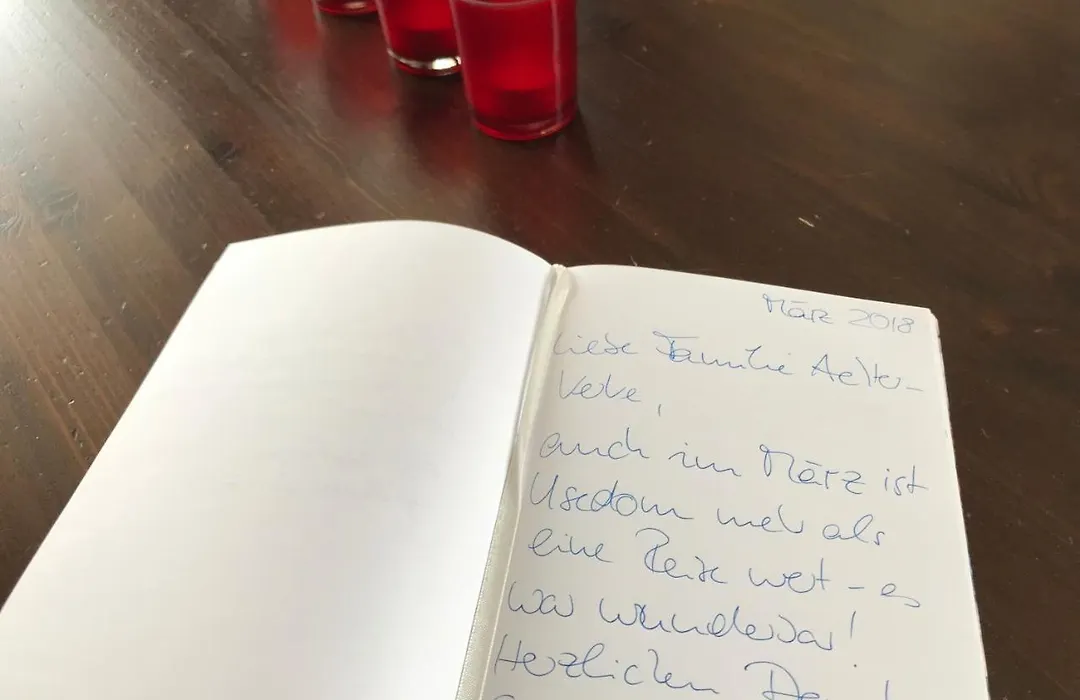 März 2018
Liebe Familie Aelter-
keke,
auch im März ist
Usedom mehr als
eine Reise wert – es
war wunderbar!
Herzlichen